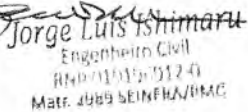 Jorge Luis Ishimaru
Engenheiro Civil
Matr. 4989 SEINFRA/PMC